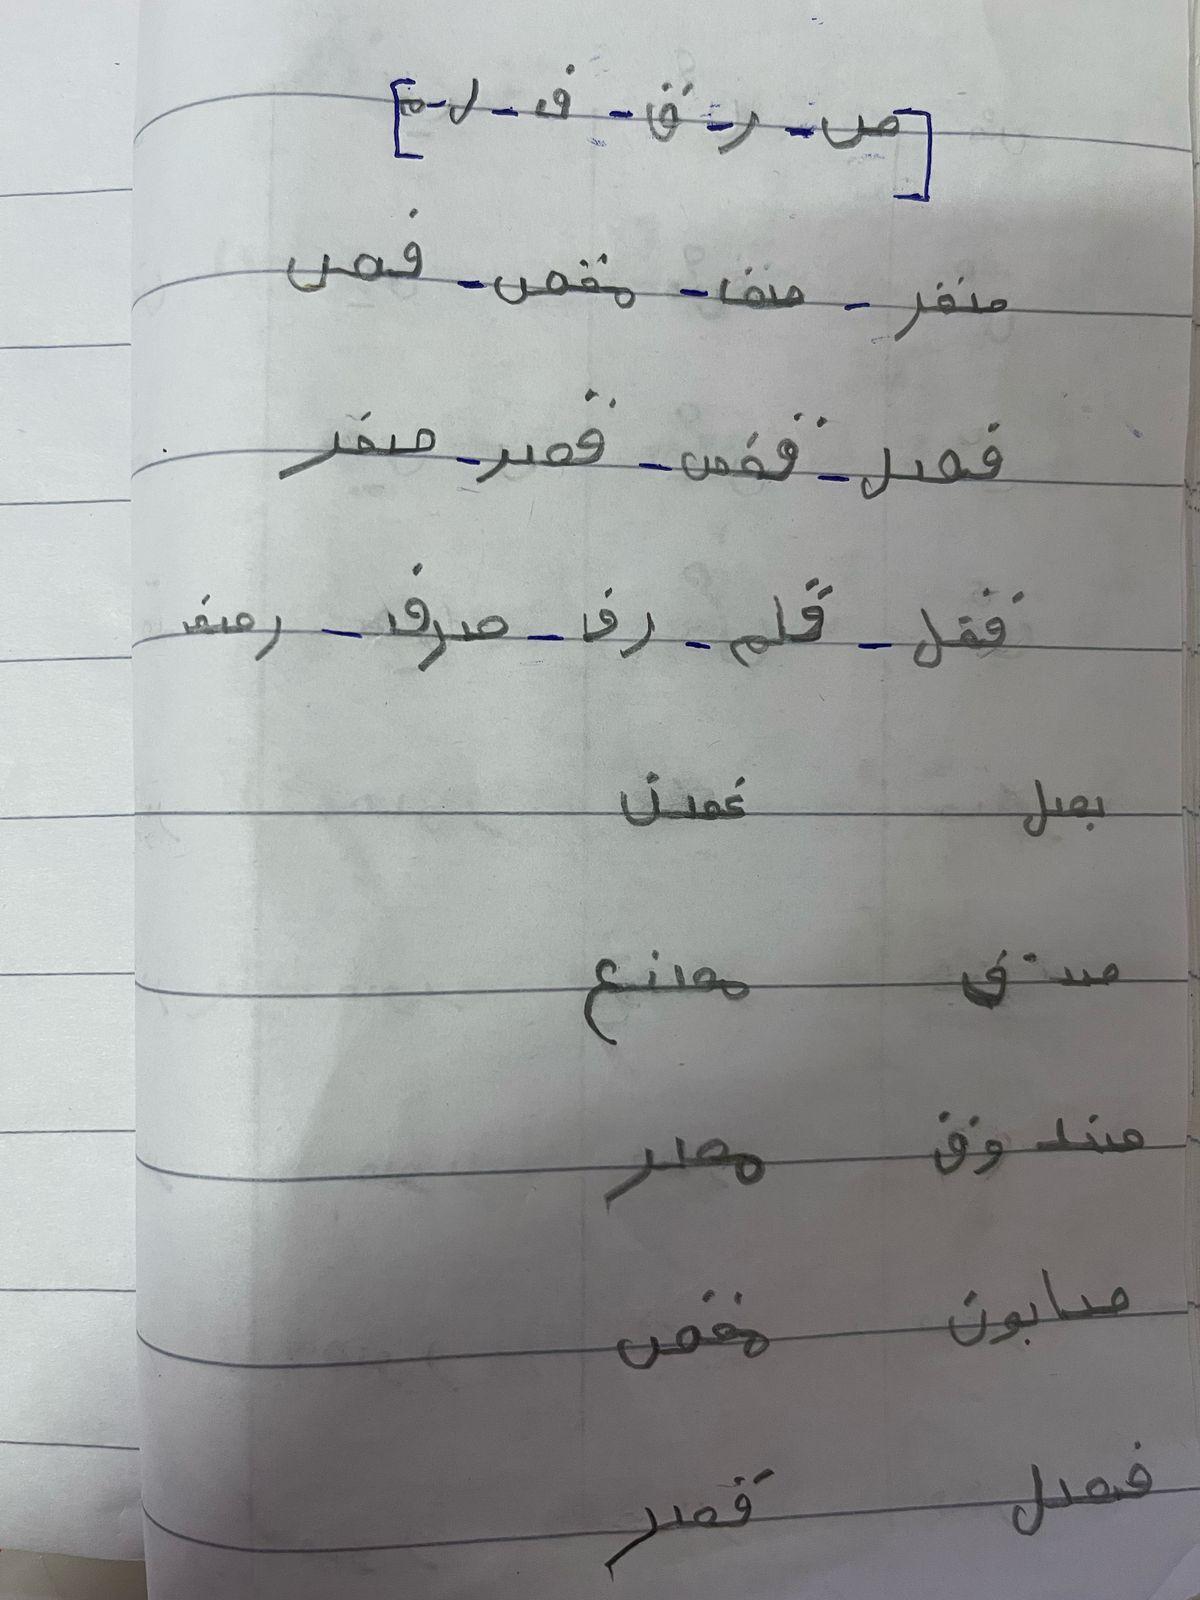 [ص - ر - ق - ف - ل - م]
صقر - صف - مقص - فص
فصل - قفص - قصر - صفر
قفل - قلم - رف - صرف - رصف
بصل غصن
صدق مصانع
صندوق مصر
صابون مقص
فصل قصر